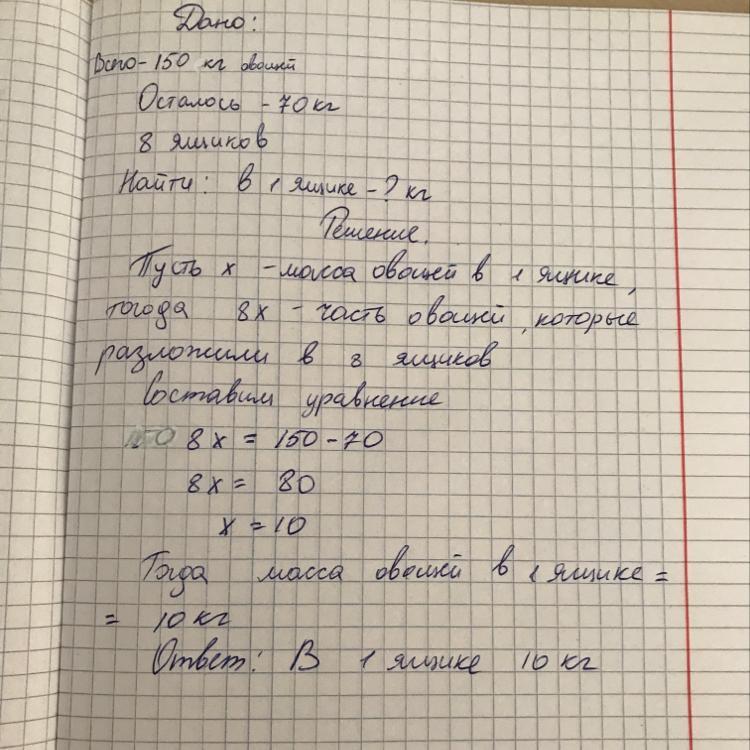 Дано:
Всго - 150 кг овощей
Осталось - 70 кг
8 ящиков
Найти: в 1 ящике - ? кг
Решение.
Пусть x - масса овощей в 1 ящике,
тогода 8x - часть овощей, которые
разложили в 8 ящиков
Составим уравнение
8x = 150 - 70
8x = 80
x = 10
Тогда масса овощей в 1 ящике =
= 10 кг
Ответ: В 1 ящике 10 кг